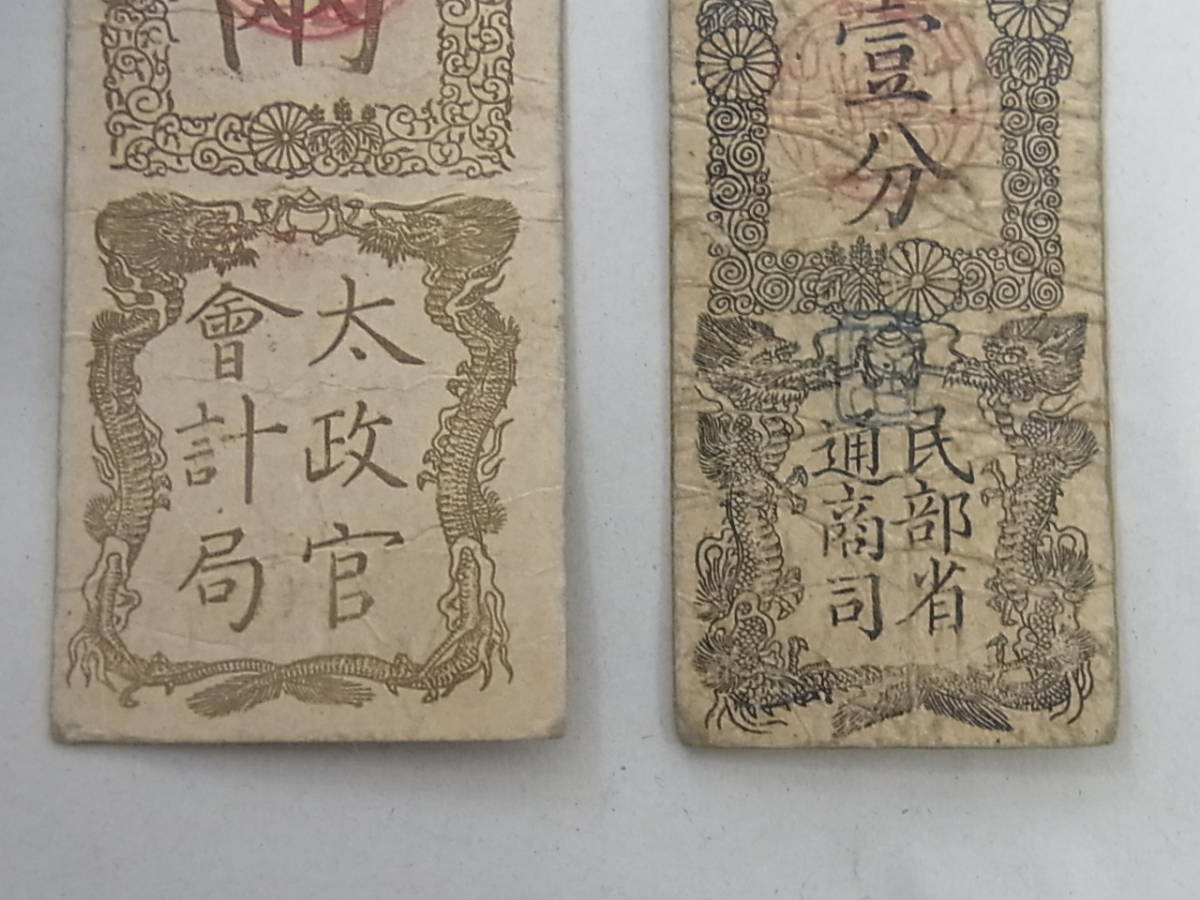 兩
太政官
會計局
壹分
民部省
通商司